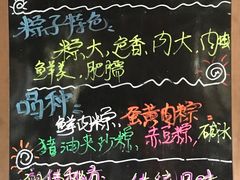 粽子特色
粽大，定香，肉大，肉
鲜美，肥糯
品种
鲜肉粽，蛋黄肉粽
猪油夹沙粽，赤豆粽，碱水